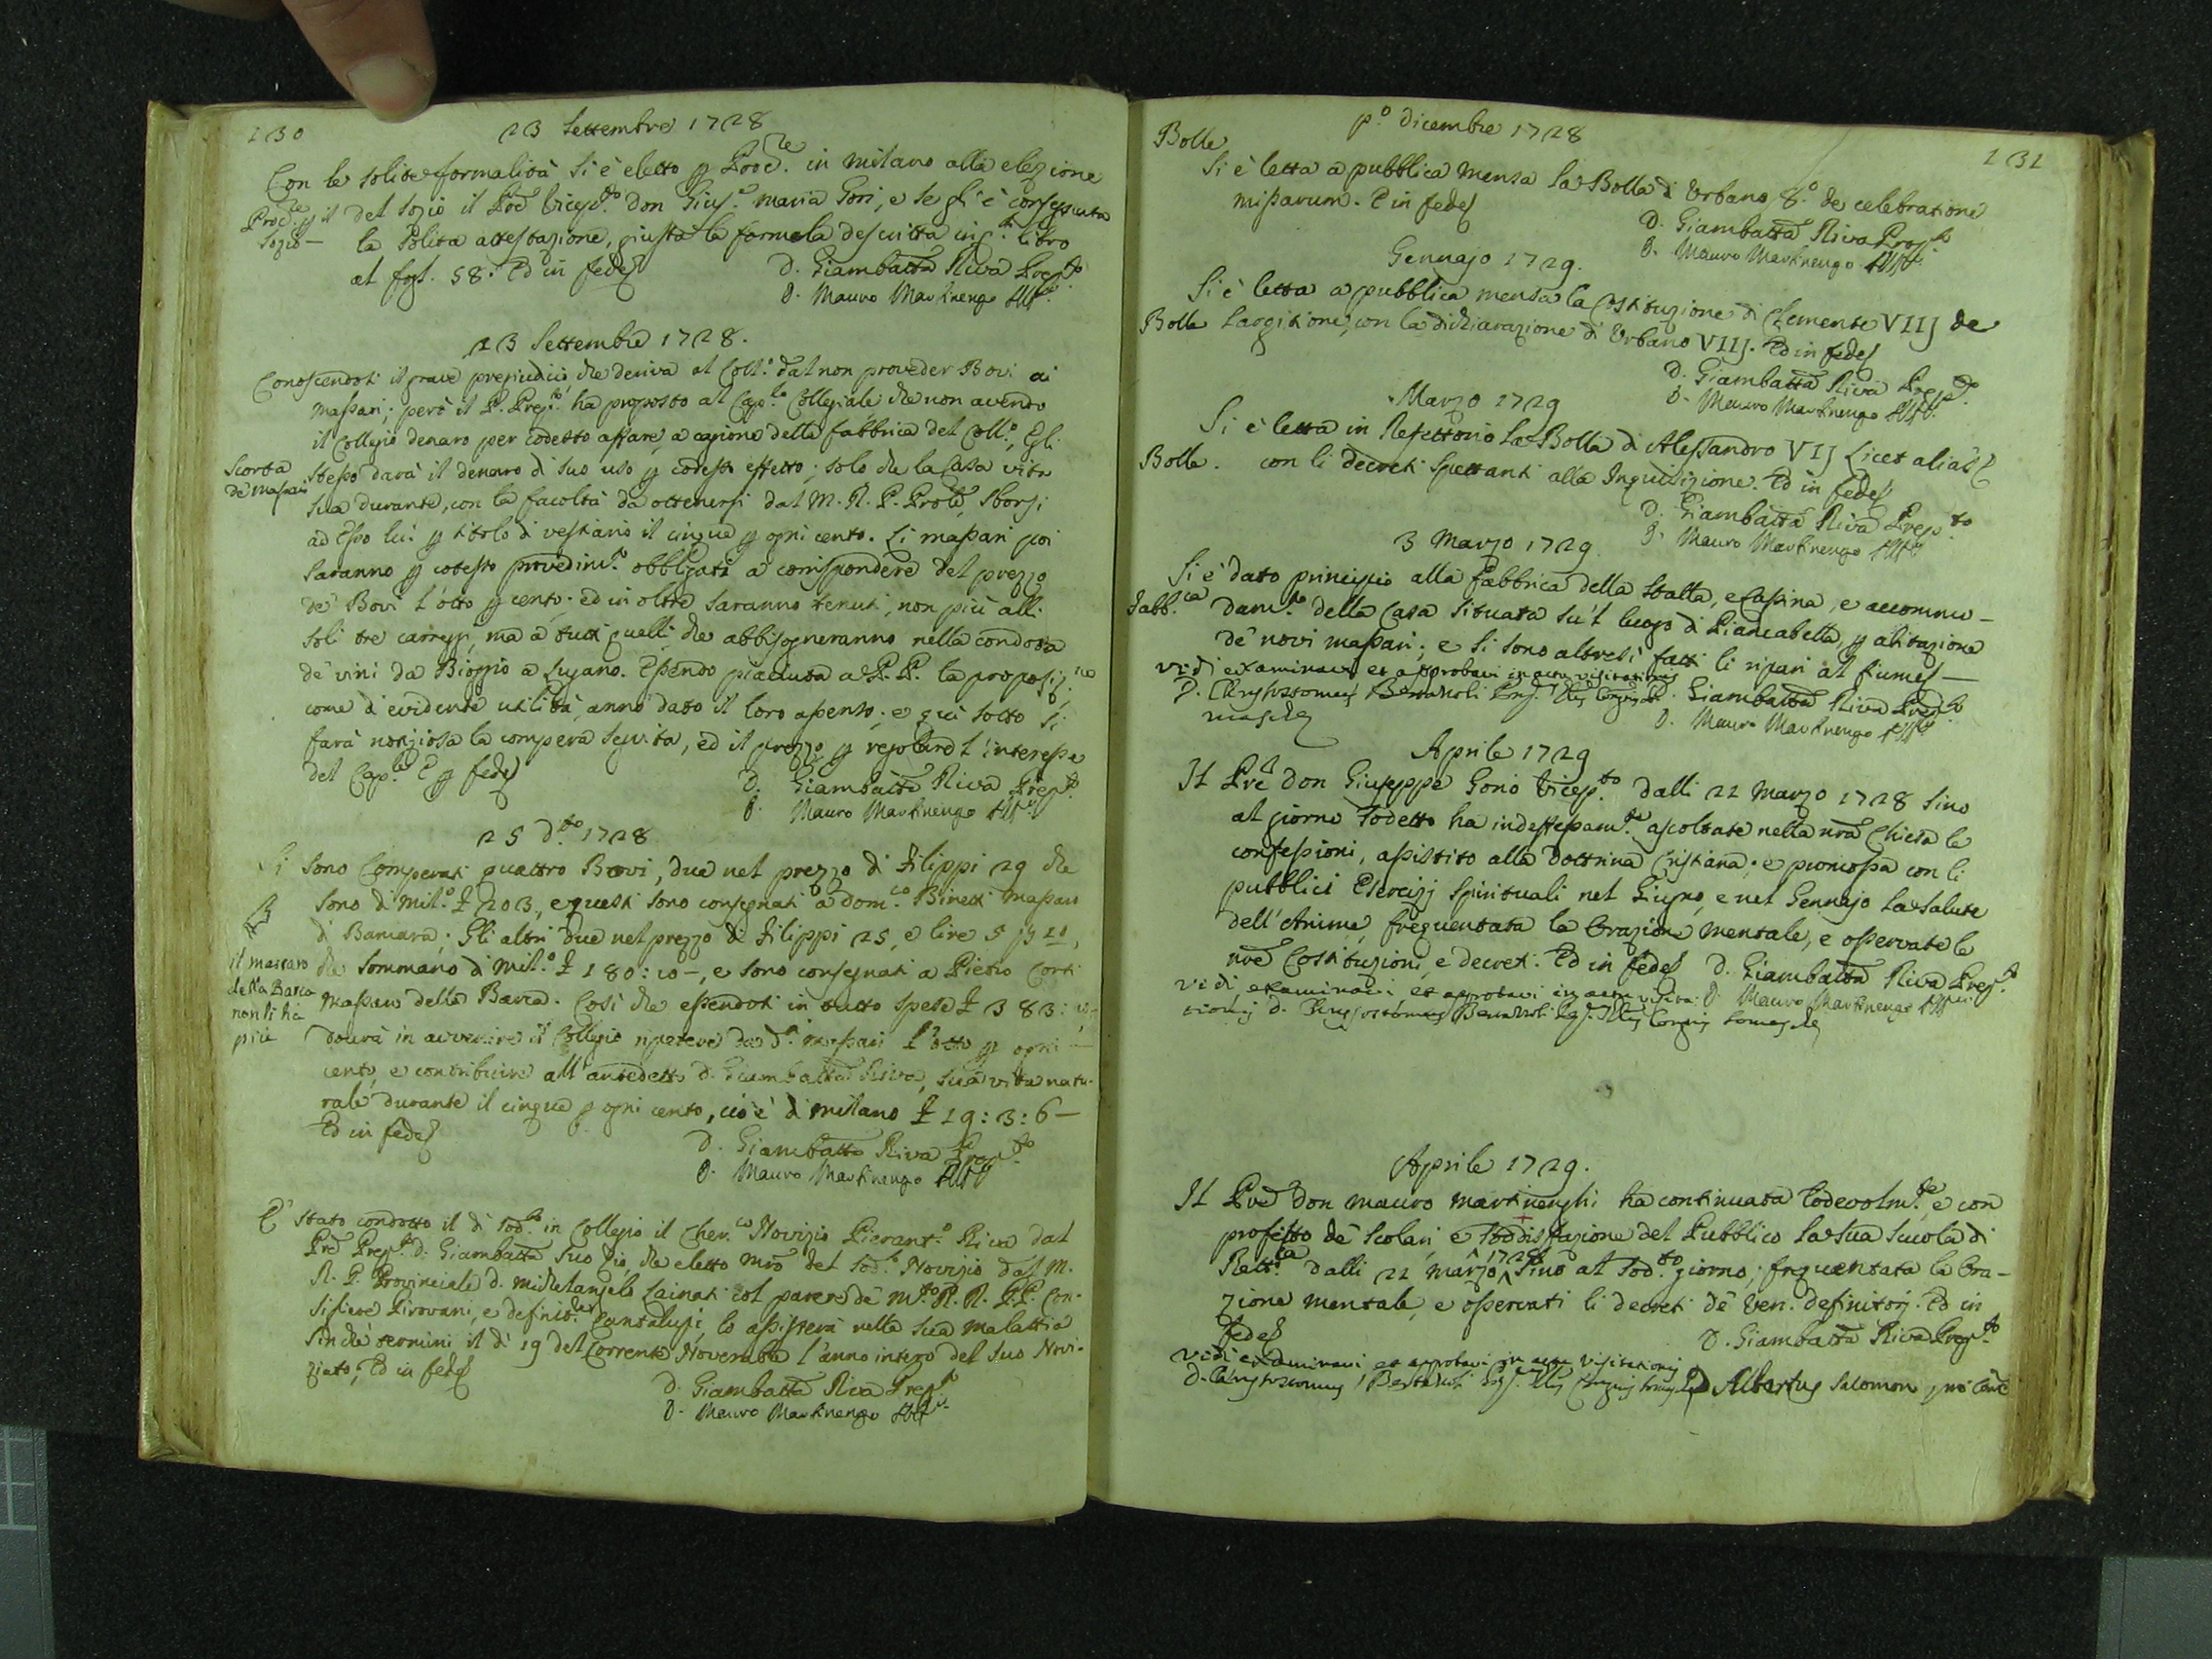 130
23 Settembre 1728
Con le solite formalità si è eletto p Procre. in milano alla elezione
Procre. p il
Sozio —
del sozio il Pre vicepto. don Gius.e maria Gori, e se gli è consegnata
la solita attestazione, giusta la formola descritta in q.to libro
al fogl. 58. Ed in fede
D. Giambatta Riva Prepto.
D. Mauro Martinengo Att.o
23 Settembre 1728.
Conoscendosi il grave pregiudicio che deriva al Coll.o dal non proveder Bovi ai
massari; però il P. Prepto. ha proposto al Cap.lo Collegiale che non avendo
il Collegio denaro per codesto affare, a cagione della fabbrica del Coll.o, Egli
Scorta
de massari
stesso darà il denaro di suo uso p codesto effetto; solo che la Casa vita
sua durante, con la facoltà da ottenersi dal M. R. P. Prole, sborsi
ad Esso lui p titolo di vestiario il cinque p ogni cento. Li massari poi
saranno p cotesto provedim.to obbligati a corrispondere del prezzo
de' Bovi l'otto p cento; ed in oltre saranno tenuti, non più alli
soli tre carreggi, ma a tutti quelli che abbisogneranno nella condotta
de' vini da Bioggio a Lugano. Essendo piaciuta a P. P. la proposiz.ne
come d'evidente utilità, anno dato il loro assenso; e qui sotto si
farà notiziosa la compera seguita, ed il prezzo p regolare l'interesse
del Cap.le E p fede
D. Giambatta Riva Prepto.
D. Mauro Martinengo Att.o
25 d.to 1728
Si sono Comperati quattro Bovi, due nel prezzo di Filippi 29 che
sono di Mil.o £ 203, e questi sono consegnati a dom.co Binetti massaro
di Bancara; Gli altri due nel prezzo di Filippi 25, e lire 5 s 10,
il massaro
della Barca
non li ha
più
che sommano di Mil.o £ 180: 10 –, e sono consegnati a Pietro Corti
massaro della Barca. Così che essendosi in tutto spese £ 383: 10 –
dovrà in avvenire il Collegio ripetere da d.i massari l'otto p ogni
cento, e contribuire all'antedetto d. Giambatta Riva, sua vita natu-
rale durante il cinque p ogni cento, cio è di milano £ 19: 3: 6 —
Ed in fede
D. Giambatta Riva Prepto.
D. Mauro Martinengo Att.o
E' stato condotto il dì sod.to in Collegio il Cher.co Novizio Pierant.o Riva dal
Pre Prepto. d. Giambatta suo Zio, che eletto mro del sod.o Novizio dal M.
R. P. Provinciale d. Michelangelo Lainati col parere de' M.to R. R. PP. Con-
sigliere Pirovani, e definit.re Cantalupi, lo assisterà nella sua malattia
sin che termini il dì 19 del Corrente Novembre l'anno intero del suo Novi-
ziato; Ed in fede
D. Giambatta Riva Prepto.
D. Mauro Martinengo Att.o
131
p.o dicembre 1728
Bolle
Si è letta a pubblica mensa la Bolla di Urbano 8.o de celebratione
missarum. E in fede
D. Giambatta Riva Prepto
D. Mauro Martinengo Att.o
Gennajo 1729.
Si è letta a pubblica mensa la Costituzione di Clemente VIIJ de
Bolle
largitione, con la dichiarazione di Urbano VIIJ. Ed in fede
D. Giambatta Riva Prepto.
D. Mauro Martinengo Att.o
Marzo 1729
Si è letta in Refettorio la Bolla di Alessandro VIJ Licet alias
Bolle.
con li decreti spettanti alla Inquisizione. Ed in fede
D. Giambatta Riva Prepto
D. Mauro Martinengo Att.o
3 Marzo 1729.
Si è dato principio alla fabbrica della stalla, e Cassina, e accommo-
Fabb.ca
dam.to della Casa situata su'l luogo di Piancabella, p abitazione
de' novi massari; e si sono altresì fatti li ripari al fiume —
vidi examinavi et approbavi in actu visitationis
D. Chrysostomus Bertazoli D. Giambatta Riva Prepto.
D. Mauro Martinengo Att.o
Aprile 1729
Il Pre don Giuseppe Gorio vicepto. dalli 22 Marzo 1728 sino
al giorno sodetto ha indefessam.te ascoltate nella nra Chiesa le
confessioni, assistito alla dottrina Cristiana; e promossa con li
pubblici Esercizj spirituali nel Giugno, e nel Gennajo la salute
dell'Anime, frequentata la Orazione mentale, e osservate le
nre Costituzioni, e decreti. Ed in fede D. Giambatta Riva Prepto.
vidi examinavi et approbavi in actu visita- D. Mauro Martinengo Att.o
tionis D. Chrysostomus Bertazoli
Aprile 1729.
Il Pre don mauro martinenghi ha continuata lodevolm.te e con
profitto de' Scolari e soddisfazione del Pubblico la sua scuola di
Rett.ca dalli 22 marzo 1728 sino al sod.to giorno; frequentata la Ora-
zione mentale, e osservati li decreti de' ven. definitorj. Ed in
fede
D. Giambatta Riva Prepto.
vidi examinavi et approbavi in actu visitationis
D. Chrysostomus Bertazoli D Albertus Salomon